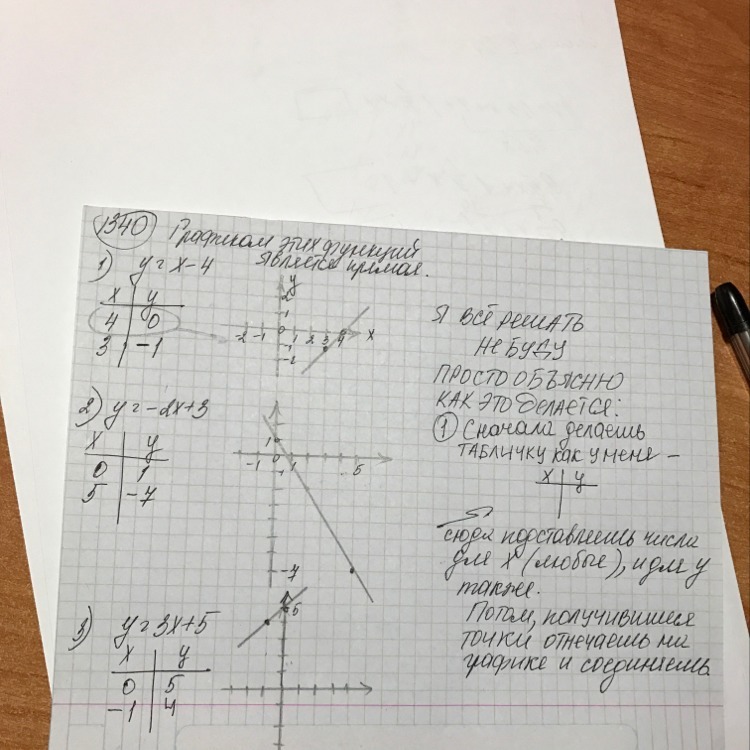 1340
Графиком этих функций
является прямая.
1) y = x - 4
x y
4 0
3 -1
y
2
1
-2 -1 0 1 2 3 4 x
-1
2) y = -2x+3
x y
0 1
5 -7
1
-1 0 1 5
-7
3) y = 3x+5
x y
0 5
-1 4
5
Я ВСЁ РЕШАТЬ
НЕ БУДУ
ПРОСТО ОБЪЯСНЮ
КАК ЭТО ДЕЛАЕТСЯ:
1 Сначала делаешь
ТАБЛИЧКУ как у меня –
x y
сюда подставляешь числа
для x (любые), и для y
также.
Потом, получившиеся
точки отмечаешь на
графике и соединяешь